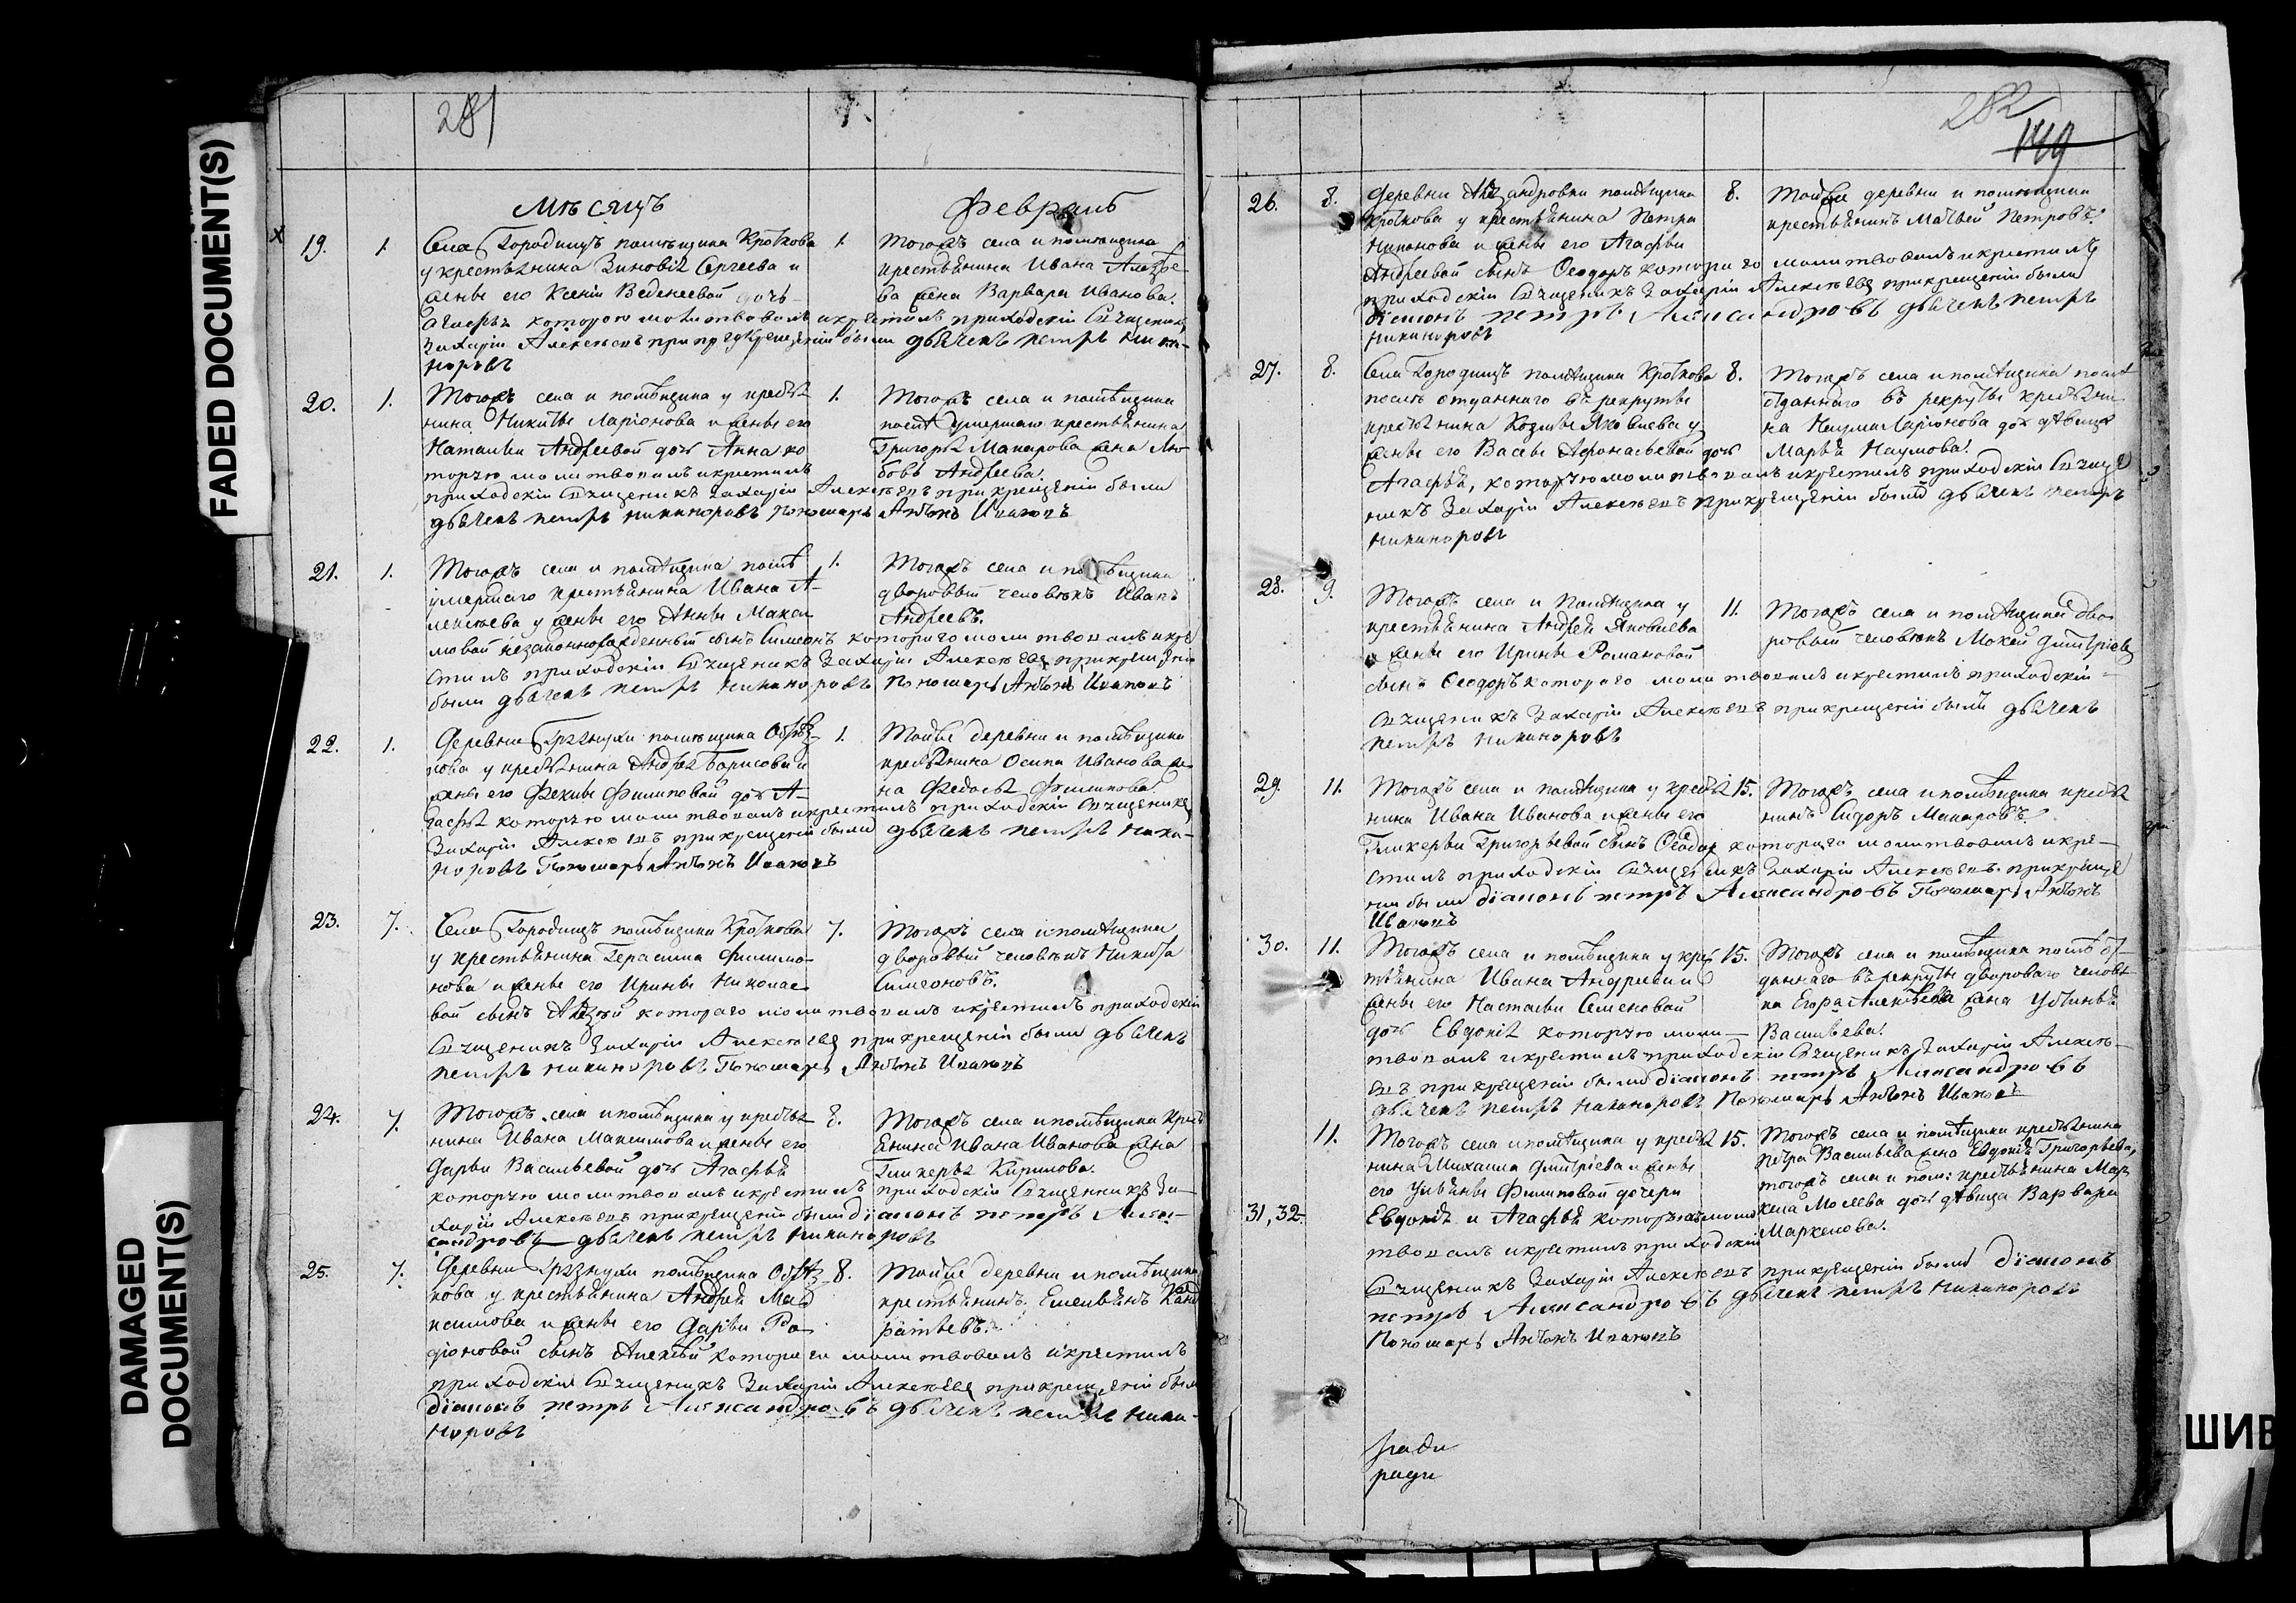 FADED DOCUMENT(S)
DAMAGED
DOCUMENT(S)
281
Мѣсяцъ Февраль
19. 1. Села Городищъ помѣщика Кроткова
у крестьянина Зиновія Сергеева и
жены его Ксеніи Веденеевой дочь
которою молитвовалъ и крестилъ приходскій Священникъ
Захарій Алексѣевъ при крещеніи были дьячекъ петръ Ника-
норовъ
1. Тогожъ села и помѣщика
крестьянина Ивана
ва жена Варвара Иванова.
20. 1. Тогожъ села и помѣщика у крестья
нина Никиты Ларіонова и жены его
Натальи Андреевой дочь Анна ко
торую молитвовалъ и крестилъ
приходскій Священникъ Захарій Алексѣевъ при крещеніи были
дьячекъ петръ никаноровъ Пономарь Антонъ Ивановъ
1. Тогожъ села и помѣщика
послѣ умершаго крестьянина
Григорья Макарова жена Лю
бовь Андреева.
21. 1. Тогожъ села и помѣщика послѣ
умершаго крестьянина Ивана А-
лексѣева у жены его Анны Макси
мовой незаконнорожденный сынъ Симеонъ котораго молитвовалъ и кре
стилъ приходскій Священникъ Захарій Алексѣевъ при крещеніи
были дьячекъ петръ никаноровъ Пономарь Антонъ Ивановъ
1. Тогожъ села и помѣщика
дворовый человѣкъ Иванъ
Андреевъ.
22. 1. Деревни Грязнухи помѣщика Обрѣз-
кова у крестьянина Андрея Борисова и
жены его Феклы Филиповой дочь А-
гафья которую молитвовалъ и крестилъ приходскій Священникъ
Захарій Алексѣевъ при крещеніи были дьячекъ петръ ника-
норовъ Пономарь Антонъ Ивановъ
1. Тойже деревни и помѣщика
крестьянина Осипа Иванова же
на Федосья Филипова.
23. 7. Села Городищъ помѣщика Кроткова
у крестьянина Герасима Филимо-
нова и жены его Ирины Николае
вой сынъ котораго молитвовалъ и крестилъ приходскій
Священникъ Захарій Алексѣевъ при крещеніи были дьячекъ
петръ никаноровъ Пономарь Антонъ Ивановъ
7. Тогожъ села и помѣщика
дворовый человѣкъ Никита
Симеоновъ.
24. 7. Тогожъ села и помѣщика у крестья
нина Ивана Максимова и жены его
Дарьи Васильевой дочь Агафья
которую молитвовалъ и крестилъ приходскій Священникъ За-
харій Алексѣевъ при крещеніи были діаконъ петръ Алек-
сандровъ дьячекъ петръ никаноровъ
8. Тогожъ села и помѣщика крест
янина Ивана Иванова жена
Гликерья Кирилова.
25. 7. Деревни Грязнухи помѣщика Обрѣз-
кова у крестьянина Андрея Мак
симова и жены его Дарьи Ро-
діоновой сынъ Алексѣй котораго молитвовалъ и крестилъ
приходскій Священникъ Захарій Алексѣевъ при крещеніи были
діаконъ петръ Александровъ дьячекъ петръ ника-
норовъ
8. Тойже деревни и помѣщика
крестьянинъ Емельянъ Канд
ратьевъ.
282
149
26. 8. Деревни помѣщика
Кроткова у крестьянина Петра
Никонова и жены его Агафьи
Андреевой сынъ Феодоръ котораго молитвовалъ и крестилъ
приходскій Священникъ Захарій Алексѣевъ при крещеніи были
діаконъ петръ Александровъ дьячекъ петръ
никаноровъ
8. Тойже деревни и помѣщика
крестьянинъ Матвей Петровъ.
27. 8. Села Городищъ помѣщика Кроткова
послѣ отданнаго въ рекруты
крестьянина Козмы Яковлева у
жены его Васѣи Афонасьевой дочь
Агафья, которую молитвовалъ и крестилъ приходскій Священ
никъ Захарій Алексѣевъ при крещеніи были дьячекъ петръ
никаноровъ
8. Тогожъ села и помѣщика послѣ
отданнаго въ рекруты крестьяни
на Наума Ларіонова дочь дѣвица
Марья Наумова.
28. 9. Тогожъ села и помѣщика у
крестьянина Андрея Яковлева
и жены его Ирины Романовой
сынъ Феодоръ котораго молитвовалъ и крестилъ приходскій
Священникъ Захарій Алексѣевъ при крещеніи были дьячекъ
петръ никаноровъ
11. Тогожъ села и помѣщика дво
ровый человѣкъ Мокей Дмитріев
29. 11. Тогожъ села и помѣщика у крестья
нина Ивана Иванова и жены его
Гликерьи Григорьевой сынъ Феодор котораго молитвовалъ и кре-
стилъ приходскій Священникъ Захарій Алексѣевъ при креще
ніи были діаконъ петръ Александровъ Пономарь Антонъ
Ивановъ
15. Тогожъ села и помѣщика крестья
нинъ Сидоръ Макаровъ.
30. 11. Тогожъ села и помѣщика у крес
тьянина Ивана Андреева и
жены его Настасьи Семеновой
дочь Евдокія которую моли-
твовалъ и крестилъ приходскій Священникъ Захарій Алексѣ-
евъ при крещеніи были діаконъ петръ Александровъ
дьячекъ петръ никаноровъ Пономарь Антонъ Ивановъ
15. Тогожъ села и помѣщика послѣ от-
даннаго въ рекруты двороваго человѣ
ка Егора Алексѣева жена Устинья
Васильева.
31, 32. 11. Тогожъ села и помѣщика у крестья
нина Михаила Дмитріева и жены
его Ульяны Филиповой дочери
Евдокія и Агафья которыхъ моли
твовалъ и крестилъ приходскій
Священникъ Захарій Алексѣевъ при крещеніи были діаконъ
петръ Александровъ дьячекъ петръ никаноровъ
Пономарь Антонъ Ивановъ
15. Тогожъ села и помѣщика крестьянина
Петра Васильева жена Евдокія Григорьева,
тогожъ села и пом: крестьянина Мар
кела Мосеева дочь дѣвица Варвара
Маркелова.
ради
ШИВ